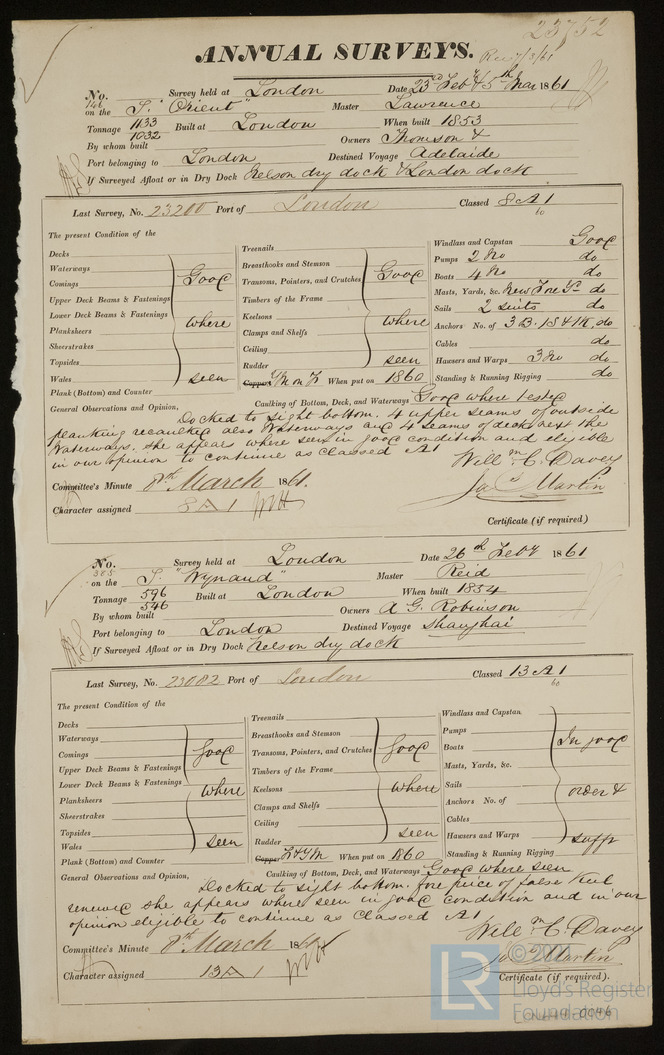 23752
ANNUAL SURVEYS. Rec 7/3/61
No. 146 Survey held at London Date 23rd Feby & 5th Mar 1861
on the S. "Orient" Master Lawrence
Tonnage 1133 1032 Built at London When built 1853
By whom built Owners Thomson &
Port belonging to London Destined Voyage Adelaide
If Surveyed Afloat or in Dry Dock Nelson dry dock & London dock
Last Survey, No. 23200 Port of London Classed 8 A 1
60
The present Condition of the
Decks
Waterways
Comings
Upper Deck Beams & Fastenings
Lower Deck Beams & Fastenings
Planksheers
Sheerstrakes
Topsides
Wales
Good where seen
Plank (Bottom) and Counter
Treenails
Breasthooks and Stemson
Transoms, Pointers, and Crutches
Timbers of the Frame
Keelsons
Clamps and Shelfs
Ceiling
Rudder
Good where seen
Copper Y M on F When put on 1860
Windlass and Capstan Good
Pumps 2 No do
Boats 4 No do
Masts, Yards, &c. New Fore Yd do
Sails 2 suits do
Anchors No. of 3 B. 1 S 4 1 K, do
Cables do
Hawsers and Warps 3 No do
Standing & Running Rigging do
Caulking of Bottom, Deck, and Waterways Good where tested
General Observations and Opinion, Docked to sight bottom. 4 upper seams of outside
planking recaulked also Waterways and 4 seams of deck next the
Waterways. She appears where seen in good condition and eligible
in our opinion to continue as Classed A1
Willm C. Davey
Jas Martin
Committee's Minute 8th March 1861.
Character assigned 8 A 1
Certificate (if required)
No. 385 Survey held at London Date 26th Feby 1861
on the S. "Wynaud" Master Reid
Tonnage 596 546 Built at London When built 1854
By whom built Owners A G. Robinson
Port belonging to London Destined Voyage Shanghai
If Surveyed Afloat or in Dry Dock Nelson dry dock
Last Survey, No. 23082 Port of London Classed 13 A 1
60
The present Condition of the
Decks
Waterways
Comings
Upper Deck Beams & Fastenings
Lower Deck Beams & Fastenings
Planksheers
Sheerstrakes
Topsides
Wales
Good where seen
Plank (Bottom) and Counter
Treenails
Breasthooks and Stemson
Transoms, Pointers, and Crutches
Timbers of the Frame
Keelsons
Clamps and Shelfs
Ceiling
Rudder
Good where seen
Copper F & YM When put on 1860
Windlass and Capstan
Pumps
Boats
Masts, Yards, &c.
Sails
Anchors No. of
Cables
Hawsers and Warps
In good order & sufft
Standing & Running Rigging
Caulking of Bottom, Deck, and Waterways Good where seen
General Observations and Opinion, Docked to sight bottom. fore piece of false Keel
renewed she appears where seen in good condition and in our
opinion eligible to continue as Classed A1
Willm C. Davey
Jas Martin
Committee's Minute 8th March 1861
Character assigned 13 A 1
Certificate (if required).
LR
© 2021
Lloyd's Register
Foundation
0046